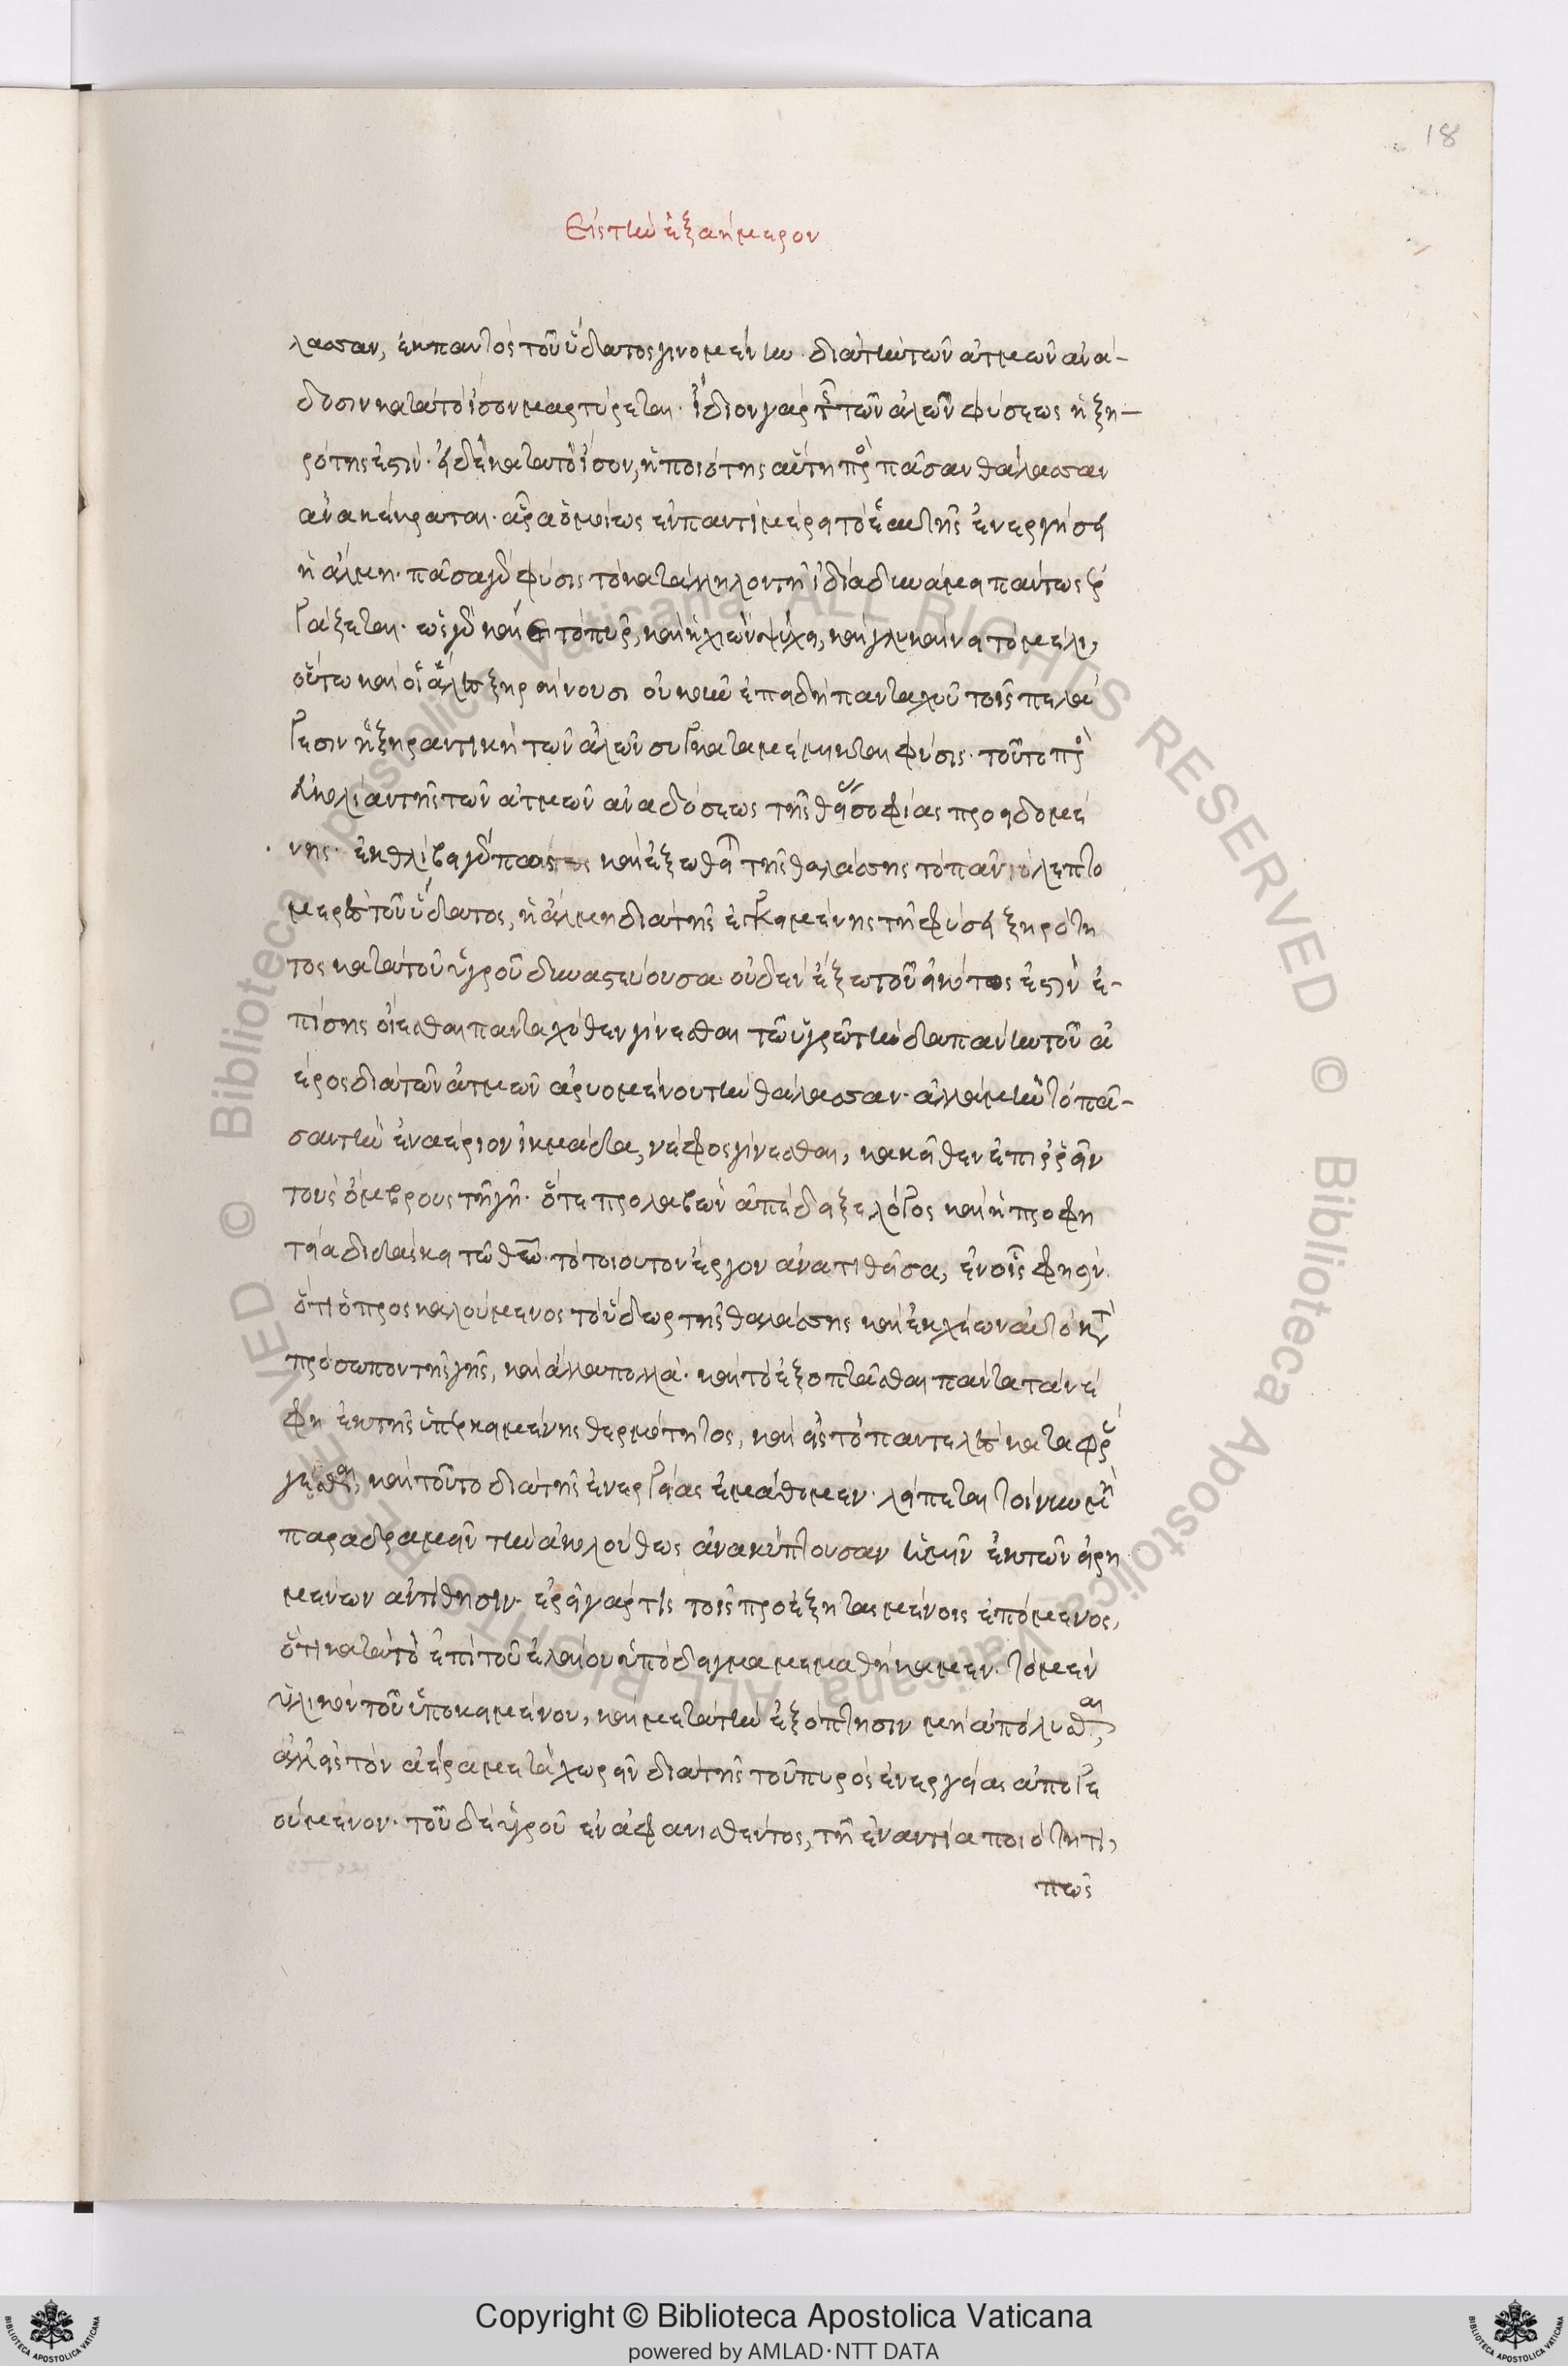 18
Εἰς τὴν ἑξαήμερον
λασσαν, ἐκ παντὸς τοῦ ὕδατος γινομένην. διὰ τὴν τῶν ἀτμῶν ἀνά-
δοσιν κατὰ τὸ ἴσον μαρτύρεται. ἴδιον γὰρ τῆς τῶν ἁλῶν φύσεως ἡ ξη-
ρότης ἐστίν. εἰ δὲ κατὰ τὸ ἴσον, ἡ ποιότης αὕτη πρὸς πᾶσαν θάλασσαν
ἀνακέκραται. ἆρα ὁμοίως ἐν παντὶ μέρει τὸ ἑαυτῆς ἐνεργήσει
ἡ ἅλμη. πᾶσα γὰρ φύσις τὸ κατάλληλον τῇ ἰδίᾳ δυνάμει πάντως ἐρ
γάζεται. ὡς γὰρ καίει τὸ πῦρ, καὶ ἡ χιὼν ψύχει, καὶ γλυκαίνει τὸ μέλι,
οὕτω καὶ οἱ ἅλες ξηραίνουσι οὐκοῦν ἐπειδὴ πανταχοῦ τοῖς πελά
γεσιν ἡ ξηραντικὴ τῶν ἁλῶν συγκαταμέμικται φύσις. τοῦτο πρὸς
εὐκολίαν τῆς τῶν ἀτμῶν ἀναδόσεως τῆς θείας σοφίας προειδομέ
νης. ἐκθλίβει γὰρ πως καὶ ἐξωθεῖ τῆς θαλάσσης τὸ πᾶν λεπτο
μερὲς τοῦ ὕδατος, ἡ ἅλμη διὰ τῆς ἐγκειμένης τῇ φύσει ξηρότη
τος κατὰ τοῦ ὑγροῦ δυναστεύουσα. οὐδὲν ἔξω τοῦ εἰκότος ἐστὶν ἐ-
πίσης οἴεσθαι πανταχόθεν γίνεσθαι τῷ ὑγρῷ τὴν δαπάνην τοῦ ἀ
έρος διὰ τῶν ἀτμῶν ἀρυομένου τὴν θάλασσαν. ἀλλὰ μὴν τὸ πᾶ-
σαν τὴν ἐναέριον ἰκμάδα, νέφος γίνεσθαι, κἀκεῖθεν ἐπιρρεῖν
τοὺς ὄμβρους τῇ γῇ. ὅτε προλαβὼν ἀπέδειξε λόγος καὶ ἡ προφη
τεία διδάσκει τῷ θεῷ τὸ τοιοῦτον ἔργον ἀνατιθεῖσα, ἐν οἷς φησὶν.
ὅτι ὁ προσκαλούμενος τὸ ὕδωρ τῆς θαλάσσης καὶ ἐκχέων αὐτὸ κατὰ
πρόσωπον τῆς γῆς, καὶ ἄλλα πολλά. καὶ τὸ ἐξοπτᾶσθαι πάντα τὰ νέ
φη ἐκ τῆς ὑπερκειμένης θερμότητος, καὶ εἰς τὸ παντελὲς καταφρύ
γεσθαι, καὶ τοῦτο διὰ τῆς ἐνεργείας ἐμάθομεν. λείπεται τοίνυν μὴ
παραδραμεῖν τὴν ἀκολούθως ἀνακύπτουσαν ἡμῖν ἐκ τῶν εἰρη
μένων ἀντίθησιν. ἐρεῖ γάρ τις τοῖς προεξητασμένοις ἑπόμενος,
ὅτι κατὰ τὸ ἐπὶ τοῦ ἐλαίου ὑπόδειγμα μεμαθήκαμεν. τὸ μὲν
ὑλικὸν τοῦ ὑποκειμένου, καὶ μετὰ τὴν ἐξόπτησιν μὴ ἀπόλυσθαι,
ἀλλ' εἰς τὸν ἀέρα μεταχωρεῖν διὰ τῆς τοῦ πυρὸς ἐνεργείας ἀπογε
ούμενον. τοῦ δὲ ὑγροῦ ἐναφανισθέντος, τῇ ἐναντίᾳ ποιότητι,
πῶς
Copyright © Biblioteca Apostolica Vaticana
powered by AMLAD·NTT DATA